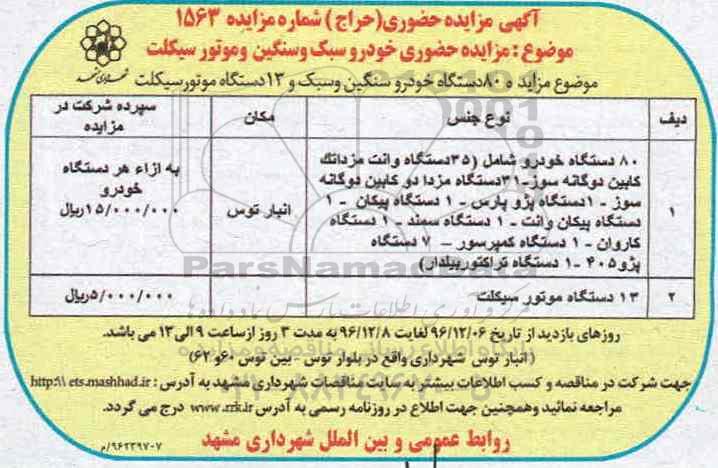 آگهی مزایده حضوری (حراج) شماره مزایده ۱۵۶۳
موضوع : مزایده حضوری خودرو سبک وسنگین وموتور سیکلت
موضوع مزاید ه ۸۰دستگاه خودرو سنگین وسبک و ۱۳دستگاه موتورسیکلت
دیف نوع جنس مکان سپرده شرکت در مزایده
۱ ۸۰ دستگاه خودرو شامل (۳۵دستگاه وانت مزداتک
کابین دوگانه سوز-۳۱دستگاه مزدا دو کابین دوگانه
سوز - ۱دستگاه پژو پارس - ۱ دستگاه پیکان - ۱
دستگاه پیکان وانت - ۱ دستگاه سمند - ۱ دستگاه
کاروان - ۱ دستگاه کمپرسور - ۷ دستگاه
پژو۴۰۵ -۱ دستگاه تراکتوربیلدار)
انبار توس
به ازاء هر دستگاه
خودرو
۱۵/۰۰۰/۰۰۰ریال
۲ ۱۳ دستگاه موتور سیکلت ۵/۰۰۰/۰۰۰ریال
روزهای بازدید از تاریخ ۹۶/۱۲/۰۶ لغایت ۹۶/۱۲/۸ به مدت ۳ روز ازساعت ۹ الی ۱۳ می باشد.
(انبار توس شهرداری واقع در بلوار توس - بین توس ۶۰و ۶۲)
جهت شرکت در مناقصه و کسب اطلاعات بیشتر به سایت مناقصات شهرداری مشهد به آدرس : http:\\ ets.mashhad.ir
مراجعه نمائید وهمچنین جهت اطلاع در روزنامه رسمی به آدرس www.rrk.ir درج می گردد.
روابط عمومی و بین الملل شهرداری مشهد
۹۶۲۳۹۷۰۷/م
ParsNamadData